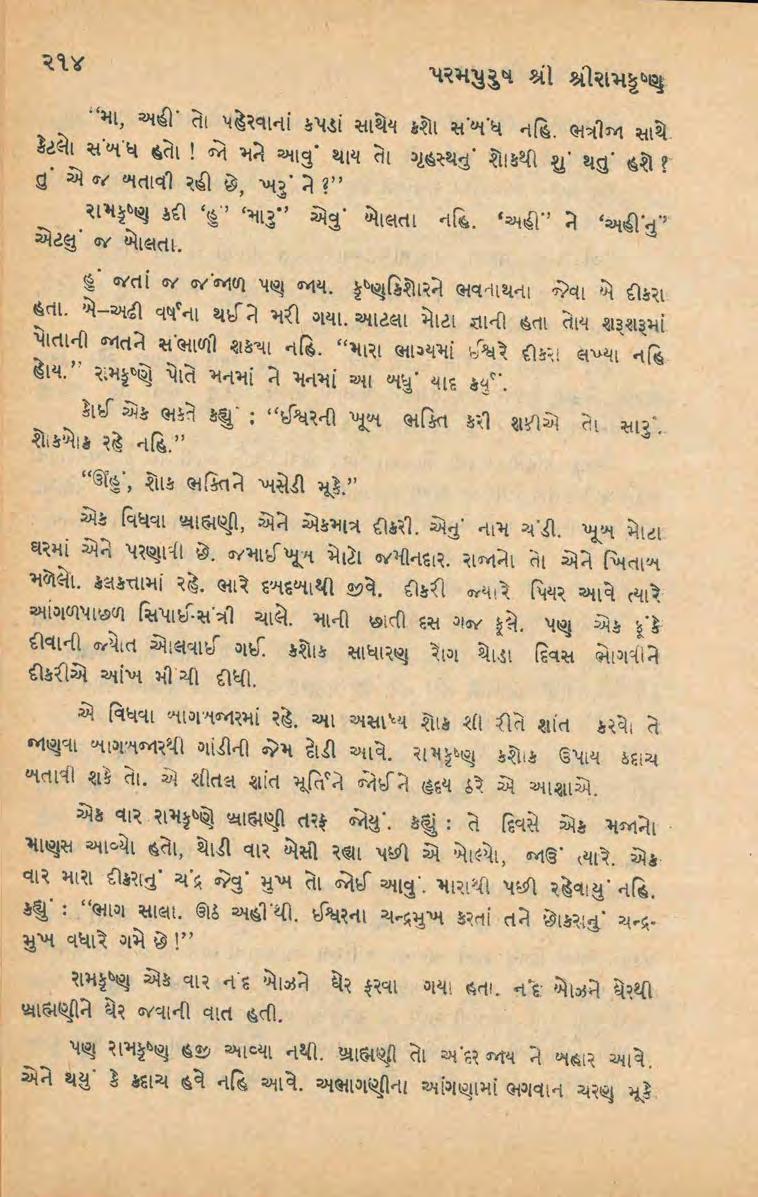 ૨૧૪
પરમપુરુષ શ્રી શ્રીરામકૃષ્ણ
“મા, અહીં તો પહેરવાનાં કપડાં સાથેય કશો સંબંધ નહિ. ભત્રીજા સાથે
કેટલો સંબંધ હતો ! જો મને આવું થાય તો ગૃહસ્થનું શોકથી શું થતું હશે ?
તું એ જ બતાવી રહી છે, ખરું ને ?”
રામકૃષ્ણ કદી ‘હું” ‘મારું” એવું બોલતા નહિ. ‘અહીં” ને ‘અહીંનું”
એટલું જ બોલતા.
હું જતાં જ જંજાળ પણ જાય. કૃષ્ણકિશોરને ભવનાથના જેવા બે દીકરા
હતા. બે–અઢી વર્ષના થઈને મરી ગયા. આટલા મોટા જ્ઞાની હતા તોય શરૂશરૂમાં
પોતાની જાતને સંભાળી શકયા નહિ. “મારા ભાગ્યમાં ઈશ્વરે દીકરા લખ્યા નહિ
હોય.” રામકૃષ્ણે પોતે મનમાં ને મનમાં આ બધું યાદ કર્યું.
કોઈ એક ભક્તે કહ્યું : “ઈશ્વરની ખૂબ ભક્તિ કરી શકીએ તો સારું.
શોકબોક રહે નહિ.”
“ઊંહું, શોક ભક્તિને ખસેડી મૂકે.”
એક વિધવા બ્રાહ્મણી, એને એકમાત્ર દીકરી. એનું નામ ચંડી. ખૂબ મોટા
ઘરમાં એને પરણાવી છે. જમાઈ ખૂબ મોટો જમીનદાર. રાજાનો તો એને ખિતાબ
મળેલો. કલકત્તામાં રહે. ભારે દબદબાથી જીવે. દીકરી જ્યારે પિયર આવે ત્યારે
આંગળપાછળ સિપાઈ-સંત્રી ચાલે. માની છાતી દસ ગજ ફૂલે. પણ એક ફૂંકે
દીવાની જ્યોત ઓલવાઈ ગઈ. કશોક સાધારણ રોગ થોડા દિવસ ભોગવીને
દીકરીએ આંખ મીંચી દીધી.
એ વિધવા બાગબજારમાં રહે. આ અસાધ્ય શોક શી રીતે શાંત કરવો તે
જાણવા બાગબજારથી ગાંડીની જેમ દોડી આવે. રામકૃષ્ણ કશોક ઉપાય કદાચ
બતાવી શકે તો. એ શીતલ શાંત મૂર્તિને જોઈને હૃદય ઠરે એ આશાએ.
એક વાર રામકૃષ્ણે બ્રાહ્મણી તરફ જોયું. કહ્યું : તે દિવસે એક મજાનો
માણસ આવ્યો હતો, થોડી વાર બેસી રહ્યા પછી એ બોલ્યો, જાઉં ત્યારે. એક
વાર મારા દીકરાનું ચંદ્ર જેવું મુખ તો જોઈ આવું. મારાથી પછી રહેવાયું નહિ.
કહ્યું : “ભાગ સાલા. ઊઠ અહીંથી. ઈશ્વરના ચન્દ્રમુખ કરતાં તને છોકરાનું ચન્દ્ર-
મુખ વધારે ગમે છે !”
રામકૃષ્ણ એક વાર નંદ બોઝને ઘેર ફરવા ગયા હતા. નંદ બોઝને ઘેરથી
બ્રાહ્મણીને ઘેર જવાની વાત હતી.
પણ રામકૃષ્ણ હજી આવ્યા નથી. બ્રાહ્મણી તો અંદર જાય ને બહાર આવે.
એને થયું કે કદાચ હવે નહિ આવે. અભાગણીના આંગણામાં ભગવાન ચરણ મૂકે